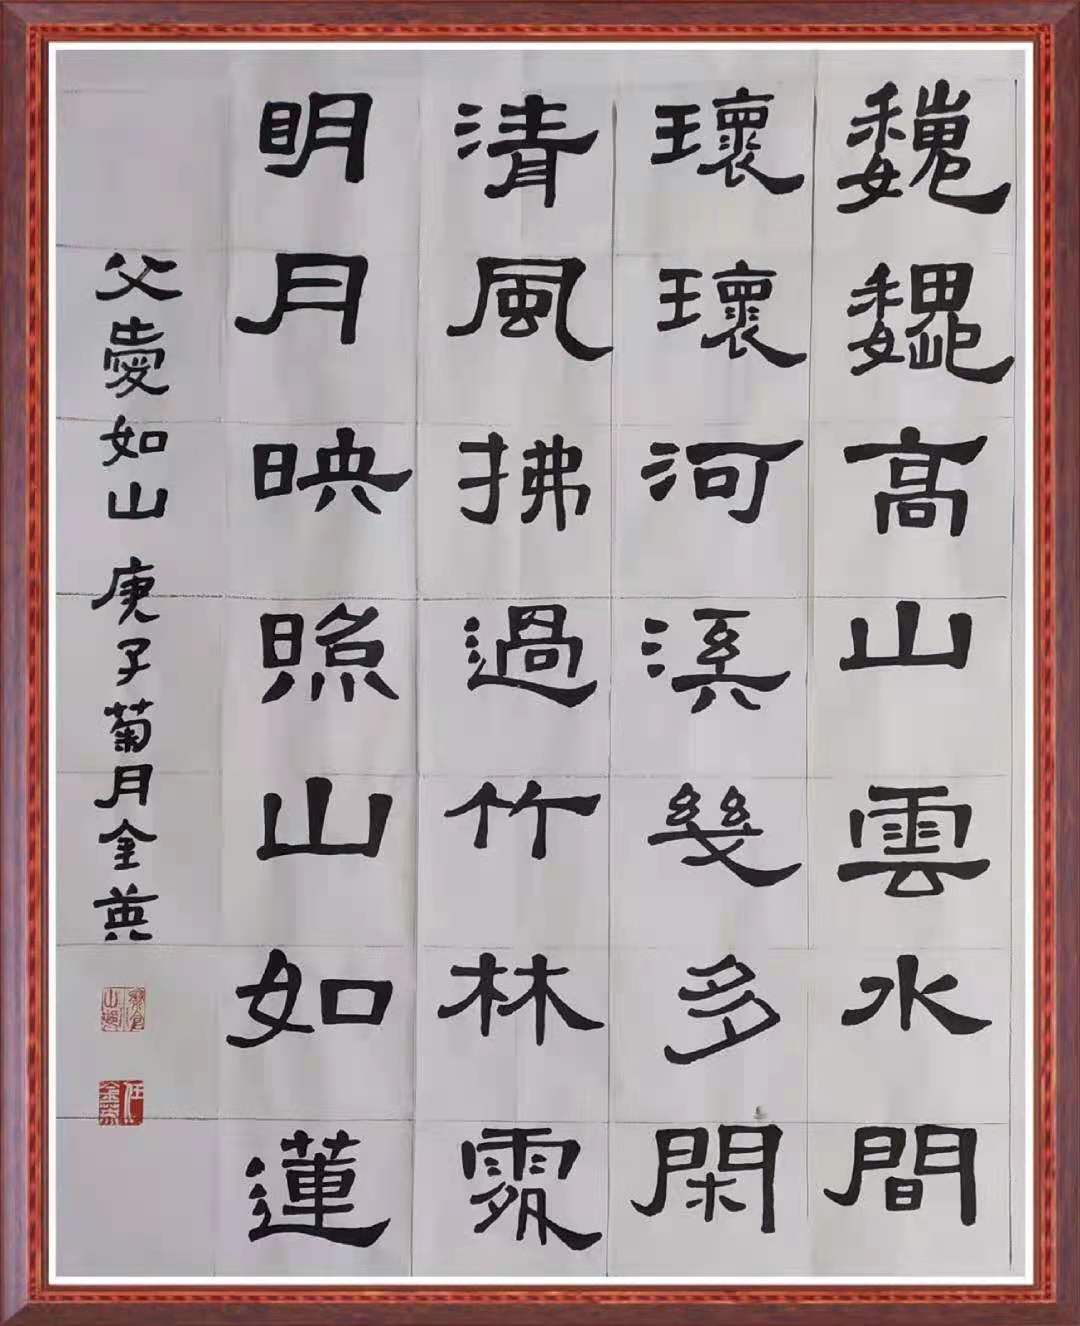 巍巍高山雲水間
環環河溪幾多閑
清風拂過竹林霧
明月映照山如蓮
父愛如山 庚子菊月金英
任金英